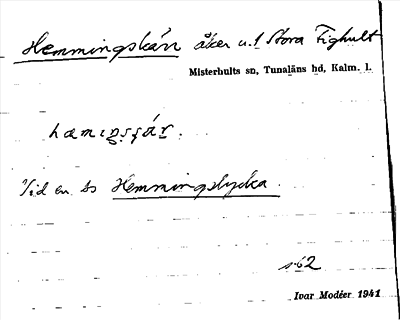 Hemmingskärr åker u. 1 Stora Fighult
Misterhults sn, Tunaläns hd, Kalm. l.
Vid en ts Hemmingslycka.
s. 62
Ivar Modéer 1941